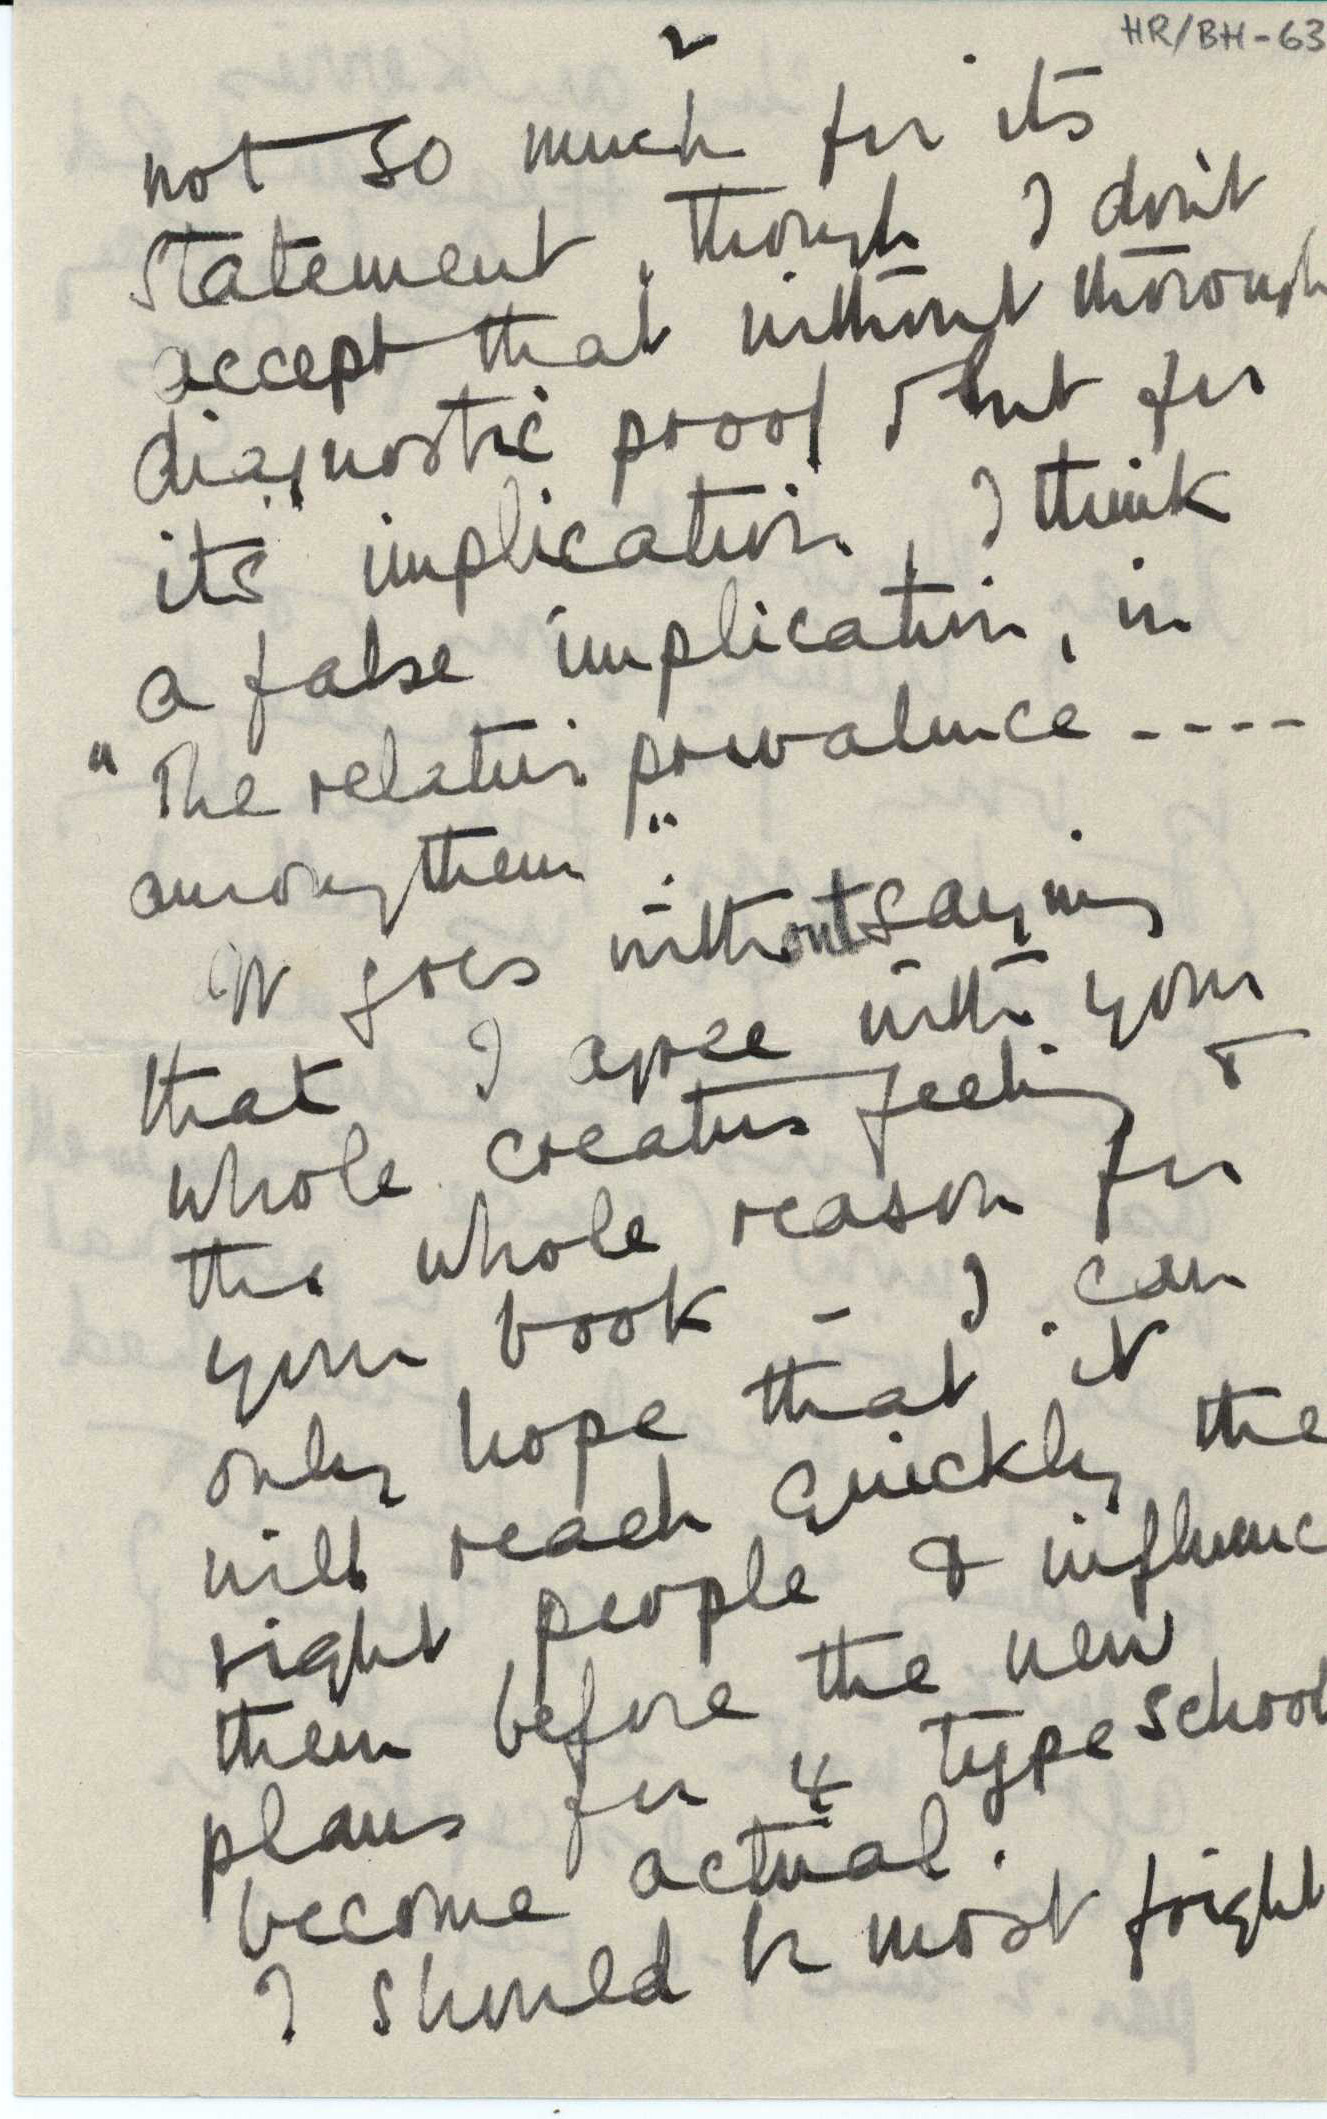 HR/BH-63
2
not so much for its
statement, though I don't
accept that without thorough
diagnostic proof, but for
its implication, I think
a false implication, in
"The relative prevalence ----
among them".
It goes without saying
that I agree with your
whole creative feeling &
the whole reason for
your book - I can
only hope that it
will reach quickly the
right people & influenc
them before the new
plans for 4 type school
become actual.
I should be most fright